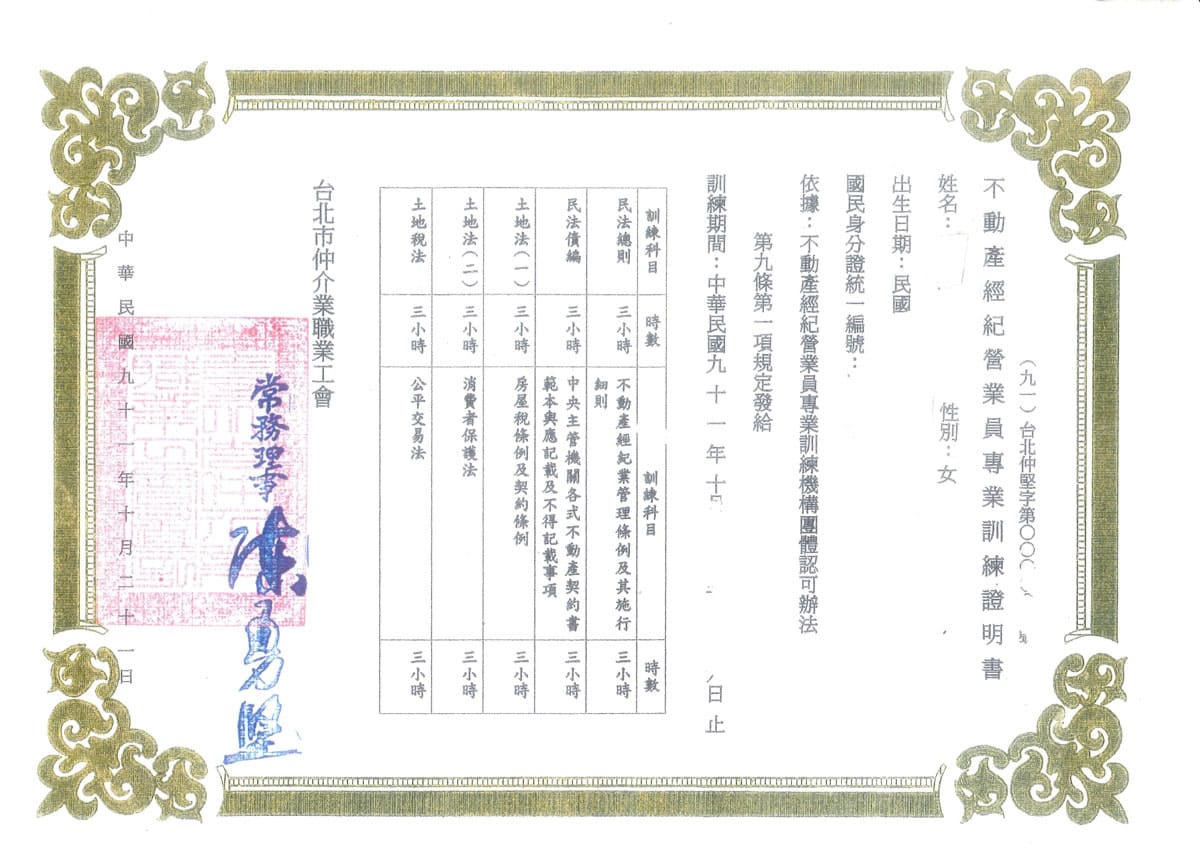 (九一)台北仲堅字第○○○
不動產經紀營業員專業訓練證明書
姓名： 性別：女
出生日期：民國
國民身分證統一編號：
依據：不動產經紀營業員專業訓練機構團體認可辦法
第九條第一項規定發給
訓練期間：中華民國九十一年十月 日止
訓練科目 時數 訓練科目 時數
民法總則 三小時 不動產經紀業管理條例及其施行細則 三小時
民法債編 三小時 中央主管機關各式不動產契約書範本與應記載及不得記載事項 三小時
土地法(一) 三小時 房屋稅條例及契約條例 三小時
土地法(二) 三小時 消費者保護法 三小時
土地稅法 三小時 公平交易法 三小時
台北市仲介業職業工會
常務理事 陳勇堅
中華民國九十一年十月二十一日